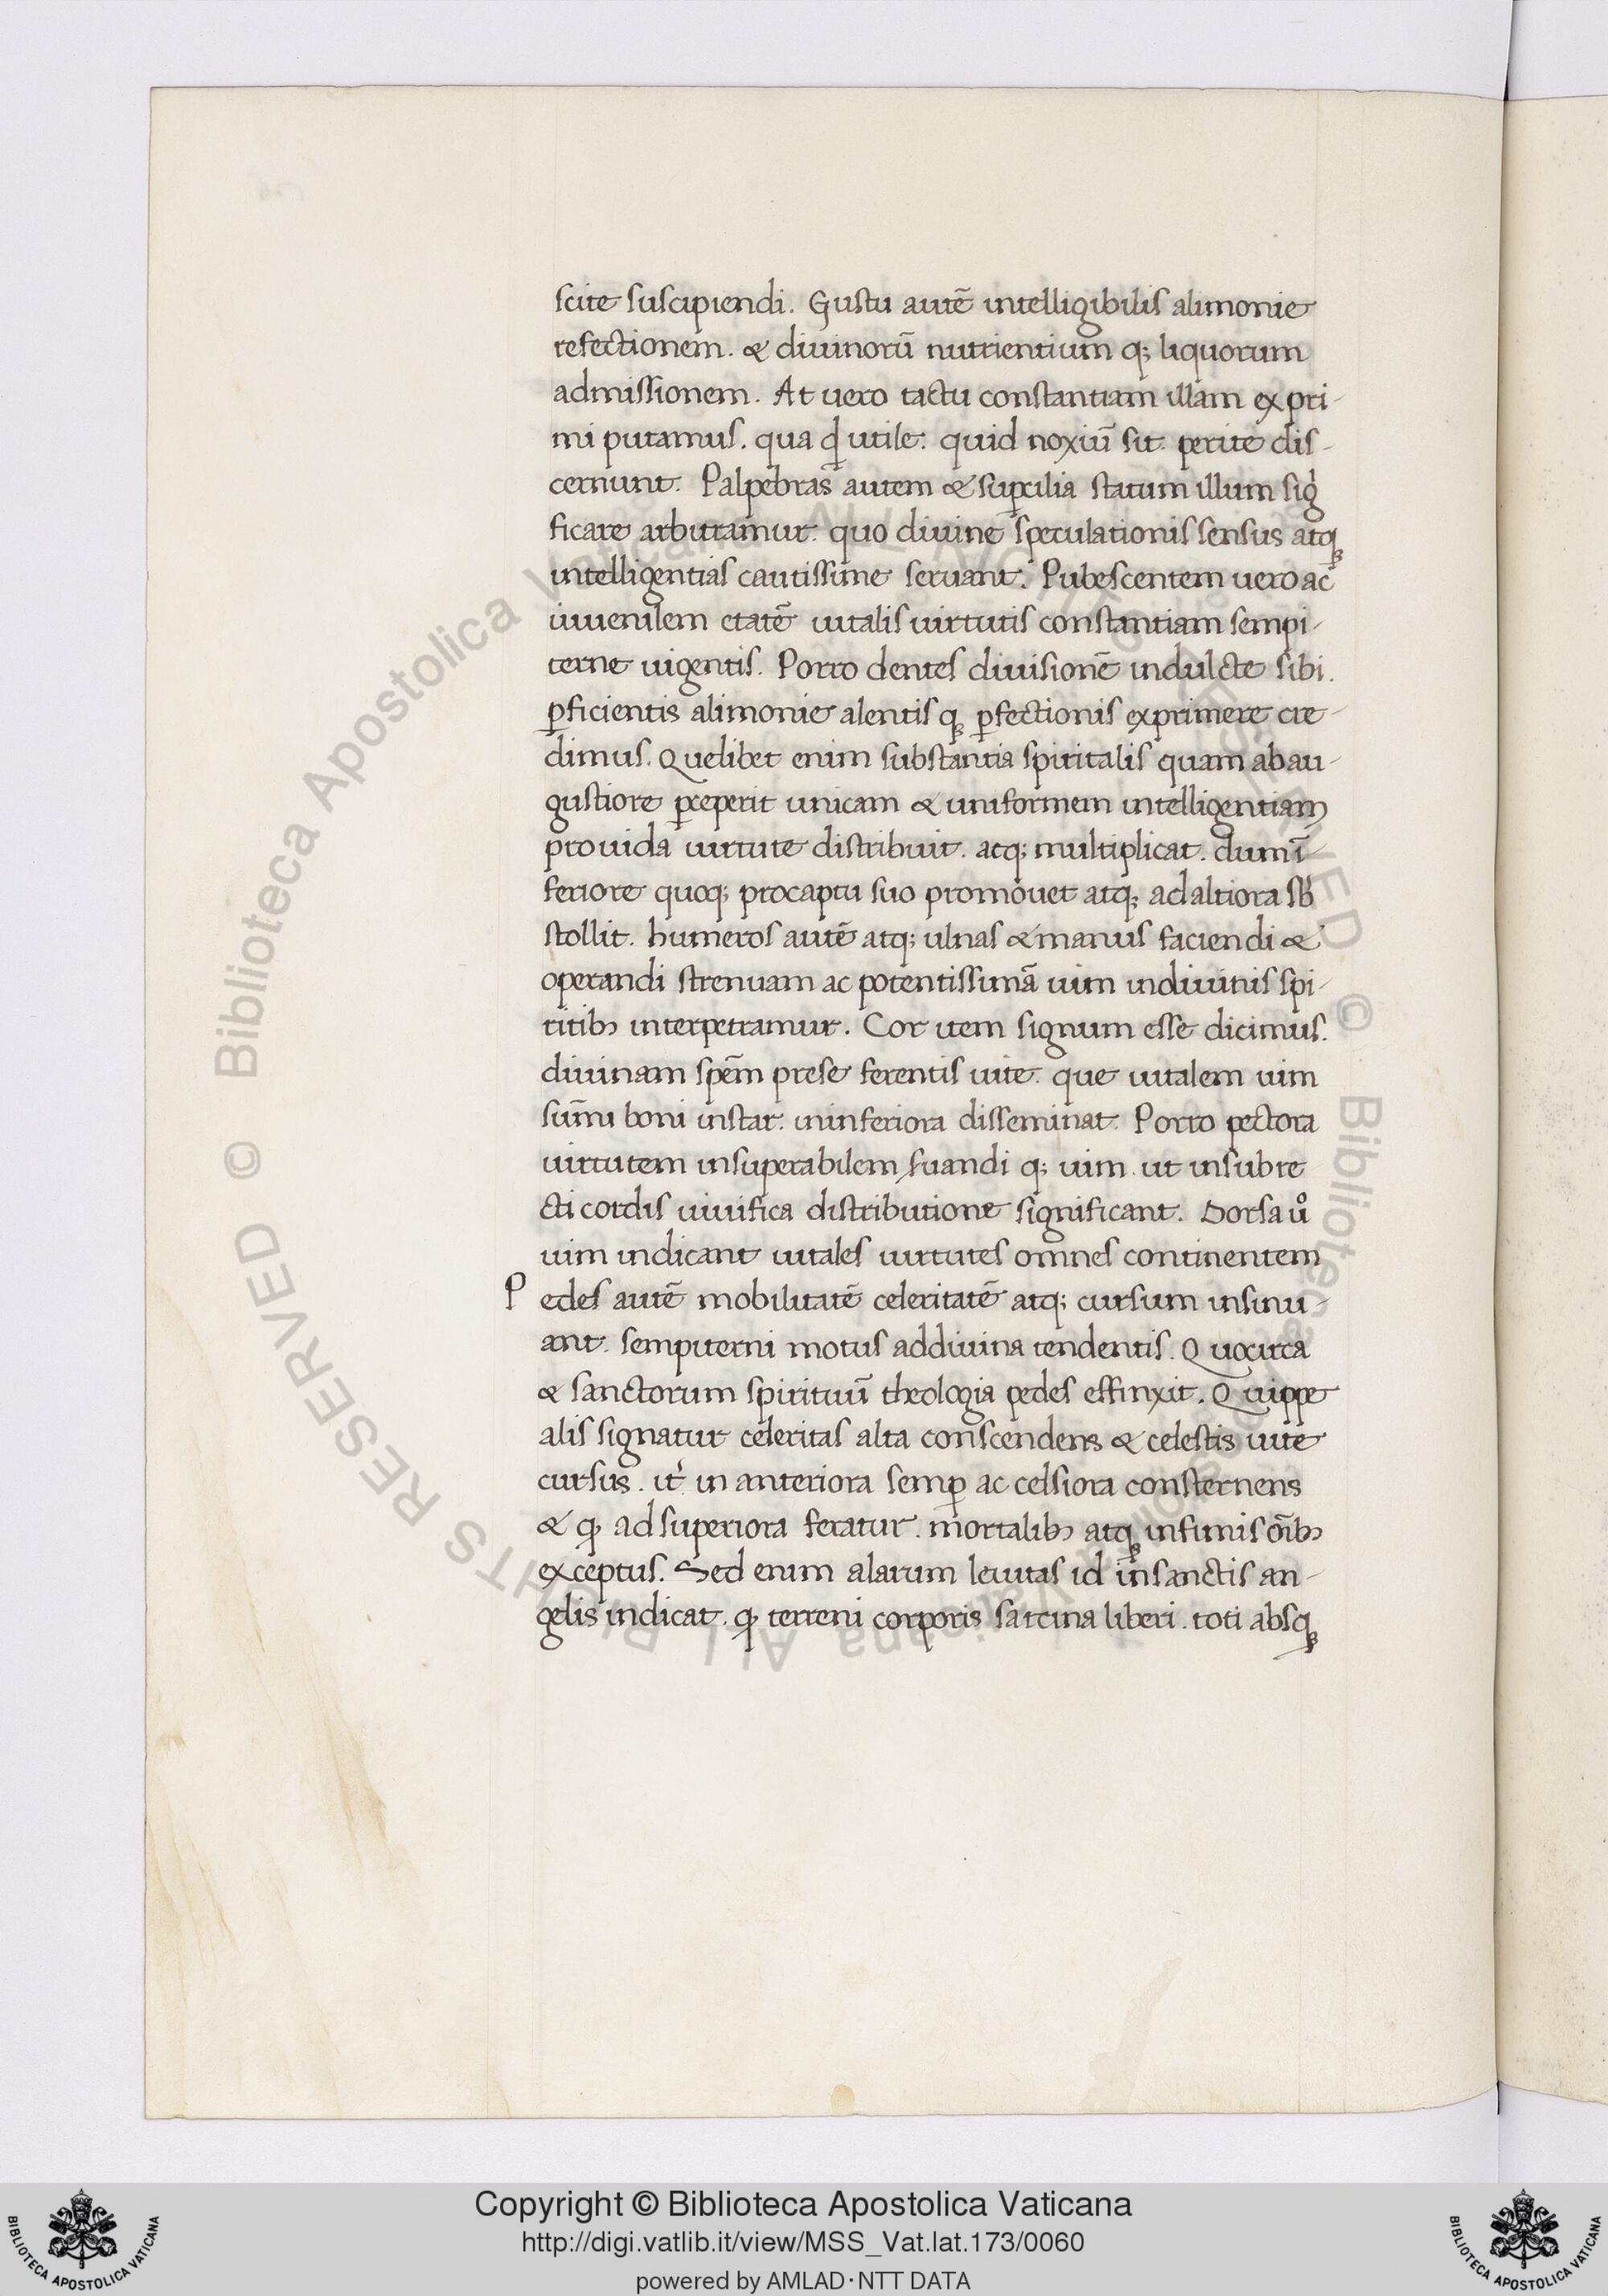 scite suscipiendi. Gustu autē intelligibilis alimonie
refectionem. & diuinorū nutrientium q; liquorum
admissionem. At uero tactu constantiam illam expri-
mi putamus. qua qd utile: quid noxiū sit. perite dis-
cernunt. Palpebras autem & supcilia statum illum sig
ficare arbitramur. quo diuine speculationis sensus atq;
intelligentias cautissime seruant. Pubescentem uero ac
iuuenilem etatē uitalis uirtutis constantiam sempi-
terne uigentis. Porro dentes diuisionē indulcte sibi.
pficientis alimonie alentis q; pfectionis exprimere cre-
dimus. Quelibet enim substantia spiritalis quam ab au-
gustiore pceperit unicam & uniformem intelligentiam
prouida uirtute distribuit. atq; multiplicat. dum ī-
feriore quoq; pro captu suo promouet atq; ad altiora sb
stollit. humeros autē atq; ulnas & manus faciendi &
operandi strenuam ac potentissimā uim in diuinis spi-
ritib; interpetramur. Cor item signum esse dicimus.
diuinam spēm prese ferentis uite. que uitalem uim
sum̄i boni instar. in inferiora disseminat. Porro pectora
uirtutem insuperabilem suandi q; uim. ut in subre
cti cordis uiuifica distributione significant. Dorsa uo
uim indicant uitales uirtutes omnes continentem
Pedes autē mobilitatē celeritatē atq; cursum insinu-
ant. sempiterni motus ad diuina tendentis. Quocirca
& sanctorum spirituū theologia pedes effinxit. Quippe
alis signatur celeritas alta conscendens & celestis uite
cursus. it in anteriora semp ac celsiora consternens
& q; ad superiora feratur. mortalib; atq; infimis oīb;
exceptus. Sed enim alarum leuitas id in sanctis an-
gelis indicat. q; terreni corporis sarcina liberi. toti absq;
Copyright © Biblioteca Apostolica Vaticana
http://digi.vatlib.it/view/MSS_Vat.lat.173/0060
powered by AMLAD·NTT DATA
BIBLIOTECA APOSTOLICA VATICANA
BIBLIOTECA APOSTOLICA VATICANA
© Biblioteca Apostolica Vaticana ALL RIGHTS RESERVED
© Biblioteca Apostolica Vaticana ALL RIGHTS RESERVED